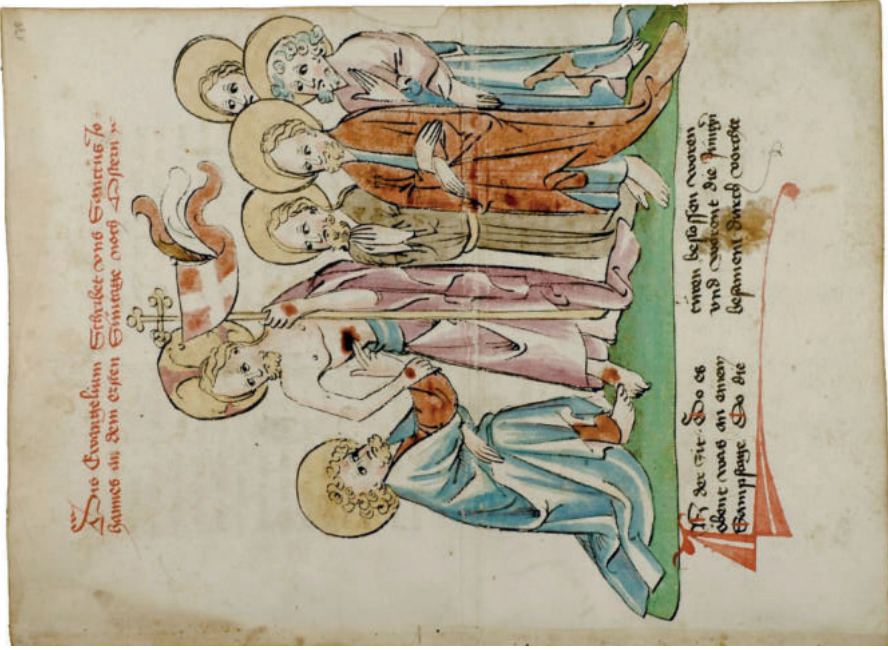 Dis Ewangelium Schribet vns Sanctus Jo-
hannes an dem ersten Sunntage noch Ostern
N der zit Do es
obent was an einem
Sampstage Do die
türen beslossen woren
vnd worent die jungern
besament durch vorchte